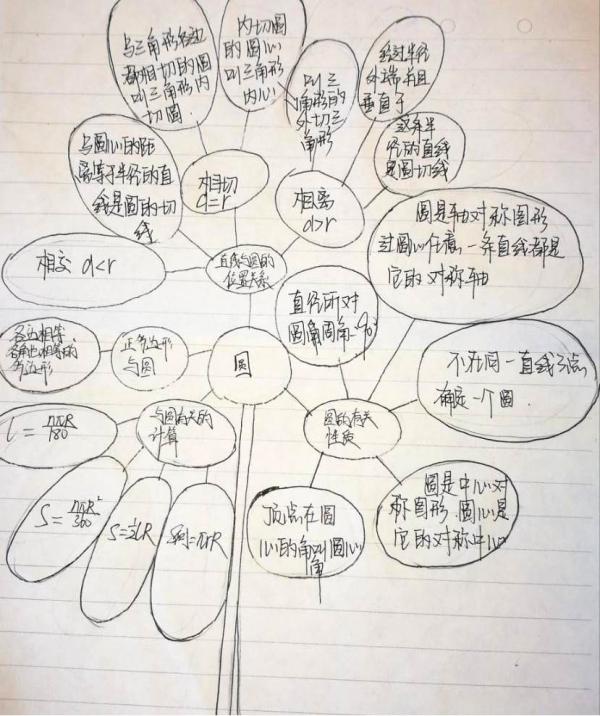 与三角形各边
都相切的圆
叫三角形内
切圆.
内切圆
的圆心
叫三角形
内心
叫三
角形的
外切三
角形
经过半径
外端并且
垂直于
径的直线
是圆切线
与圆心的距
离等于半径的直
线是圆的切
线
相切
d=r
相离
d>r
圆是轴对称图形
过圆心任意一条直线都是
它的对称轴
相交 d<r
直线与圆的
位置关系
直径所对
圆角周角=90°
各边相等,
各角也相等的
多边形
正多边形
与圆
圆
不在同一直线3点
确定一个圆.
l=nπR/180
与圆有关的
计算
圆的有关
性质
S=nπR²/360
S=½lR
S侧=πrR
顶点在圆
心的角叫圆心
角
圆是中心对
称图形.圆心是
它的对称中心